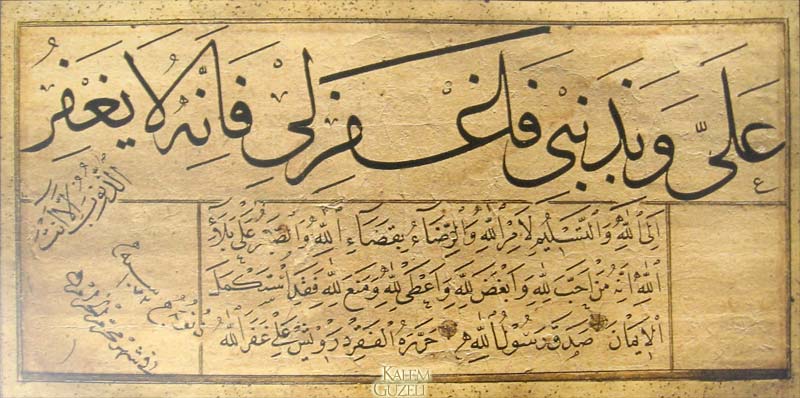 عَلَيَّ وَبِذَنْبِي فَاغْفِرْ لِي فَاِنَّهُ لَا يَغْفِرُ
الذُّنُوبَ اِلَّا اَنْتَ
اِلَى اللهِ وَالتَّسْلِيمِ لِاَمْرِ اللهِ وَالرِّضَاءُ بِقَضَاءِ اللهِ وَالصَّبْرُ عَلَى بَلَاءِ
اللهِ اِنَّهُ مَنْ اَحَبَّ لِلهِ وَاَبْغَضَ لِلهِ وَاَعْطَى لِلهِ وَمَنَعَ لِلهِ فَقَدِ اسْتَكْمَلَ
الْاِيمَانَ صَدَقَ رَسُولُ اللهِ حَرَّرَهُ الْفَقِيرُ دَرْوِيشْ عَلِي غَفَرَ اللهُ
KALEM
GUZELI